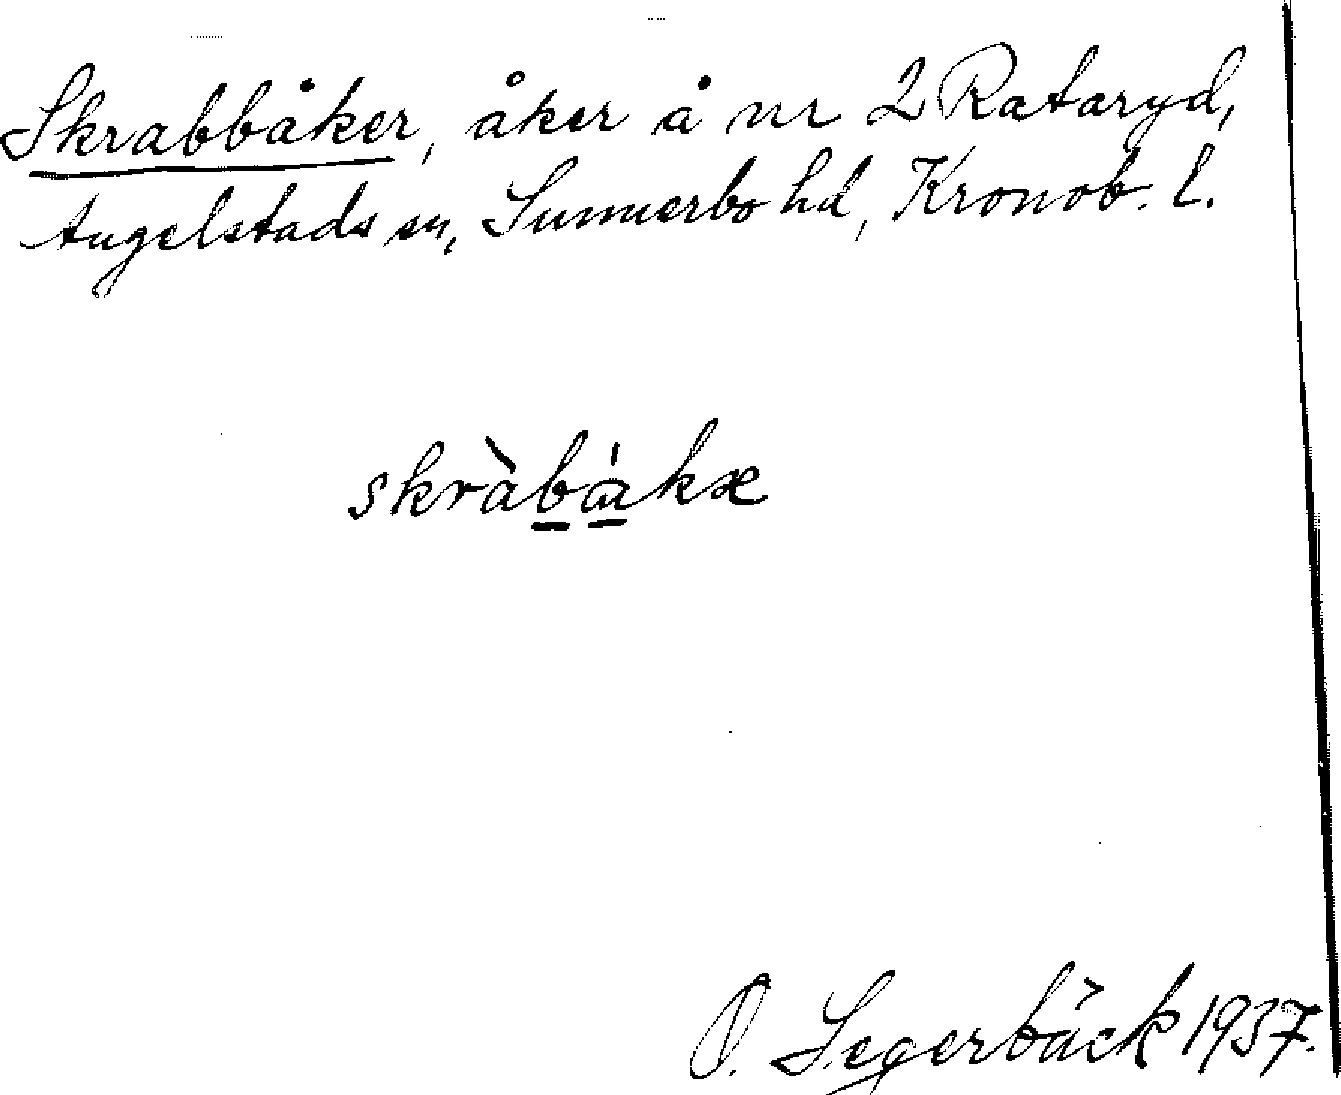 Skrabbåker, åker å nr 2 Rataryd,
Angelstads sn, Sunnerbo hd, Kronob. l.
skràbákæ
O. Segerbäck 1937.